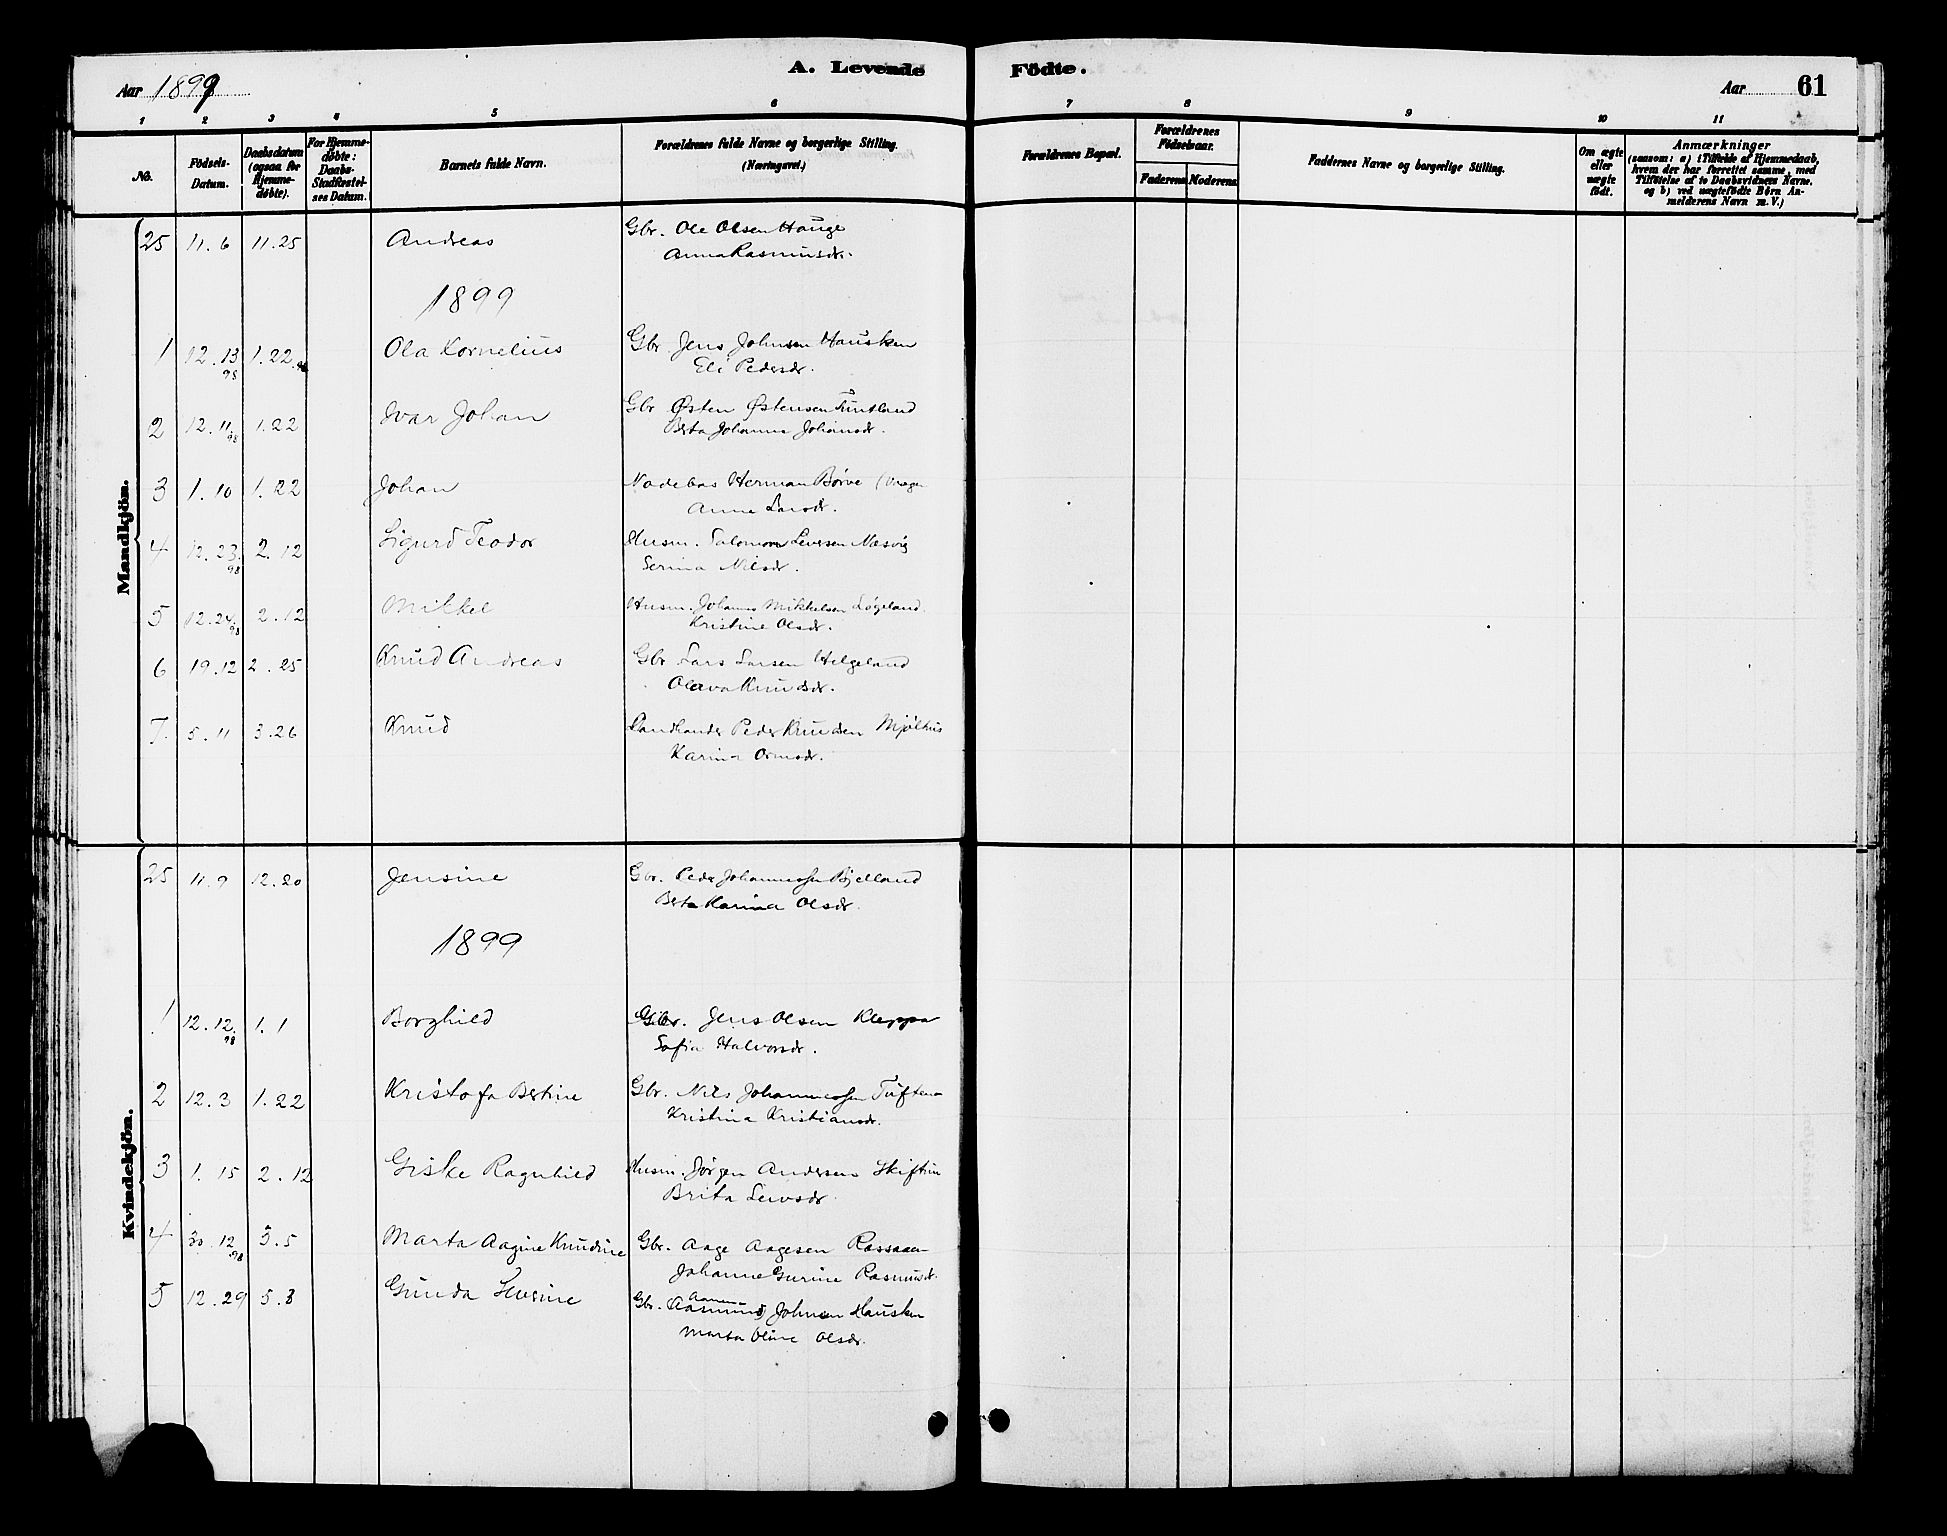 A. Levende Födte.
Aar 1899
Aar 61
1 2 3 4 5 6 7 8 9 10 11
No.
Födsels-Datum.
Daabsdatum (ogsaa for Hjemme-døbte).
For Hjemme-døbte: Daabs-Stadfæstel-ses Datum.
Barnets fulde Navn.
Forældrenes fulde Navne og borgerlige Stilling. (Næringsvei.)
Forældrenes Bopæl.
Forældrenes Fødselsaar.
Faderens Moderens
Faddernes Navne og borgerlige Stilling.
Om ægte eller uægte født.
Anmærkninger
(saasom: a) i Tilfælde af Hjemmedaab, hvem der har forrettet samme, med Tilføielse af to Daabsvidners Navne, og b) ved uægtefødte Børn An-melderens Navn m. V.)
Mandkjön.
25 11.6 11.25 Andreas Gbr. Ole Olsen Hauge
Anna Rasmusdr.
1899
1 12.13 98 1.22 Ola Kornelius Gbr. Jens Johnsen Hausken
Eli Pedersdr.
2 12.11 98 1.22 Ivar Johan Gbr Østen Østensen Tuntland
Berta Johanna Johansdr.
3 1.10 1.22 Johan Nodebas Herman Børve
Anne Larsdr.
4 12.23 98 2.12 Sigurd Teodor Husm. Salomon Leversen Næsvig
Serina Nilsdr.
5 12.24 98 2.12 Mikkel Husm. Johannes Mikkelsen Løgeland
Kristine Olsdr.
6 19.12 2.25 Knud Andreas Gbr Lars Larsen Helgeland
Olava Knudsdr.
7. 5.11 3.26 Knud Landhandler Peder Knudsen Mjølhus
Karina Ormsdr.
Kvindekjön.
25 11.9 12.20 Jensine Gbr. Peder Johannessen Bjelland
Berta Karina Olsdr.
1899
1 12.12 98 1.1 Borghild Gbr. Jens Olsen Kleppa
Sofia Halvorsdr.
2 12.3 1.22 Kristofa Bertine Gbr. Nils Johannessen Tuftene
Kristina Kristiansdr.
3 1.15 2.12 Giske Ragnhild Husm. Jørgen Andersen Skiftun
Brita Leivsdr
4 30.12 98 3.5 Marta Aagine Knudsine Gbr. Aage Aagesen Rossaaen
Johanne Gurine Rasmusdr.
5 12.29 5.3 Gunda Severine Gbr. Aasmund Johnsen Hausken
Marta Oline Olsdr.